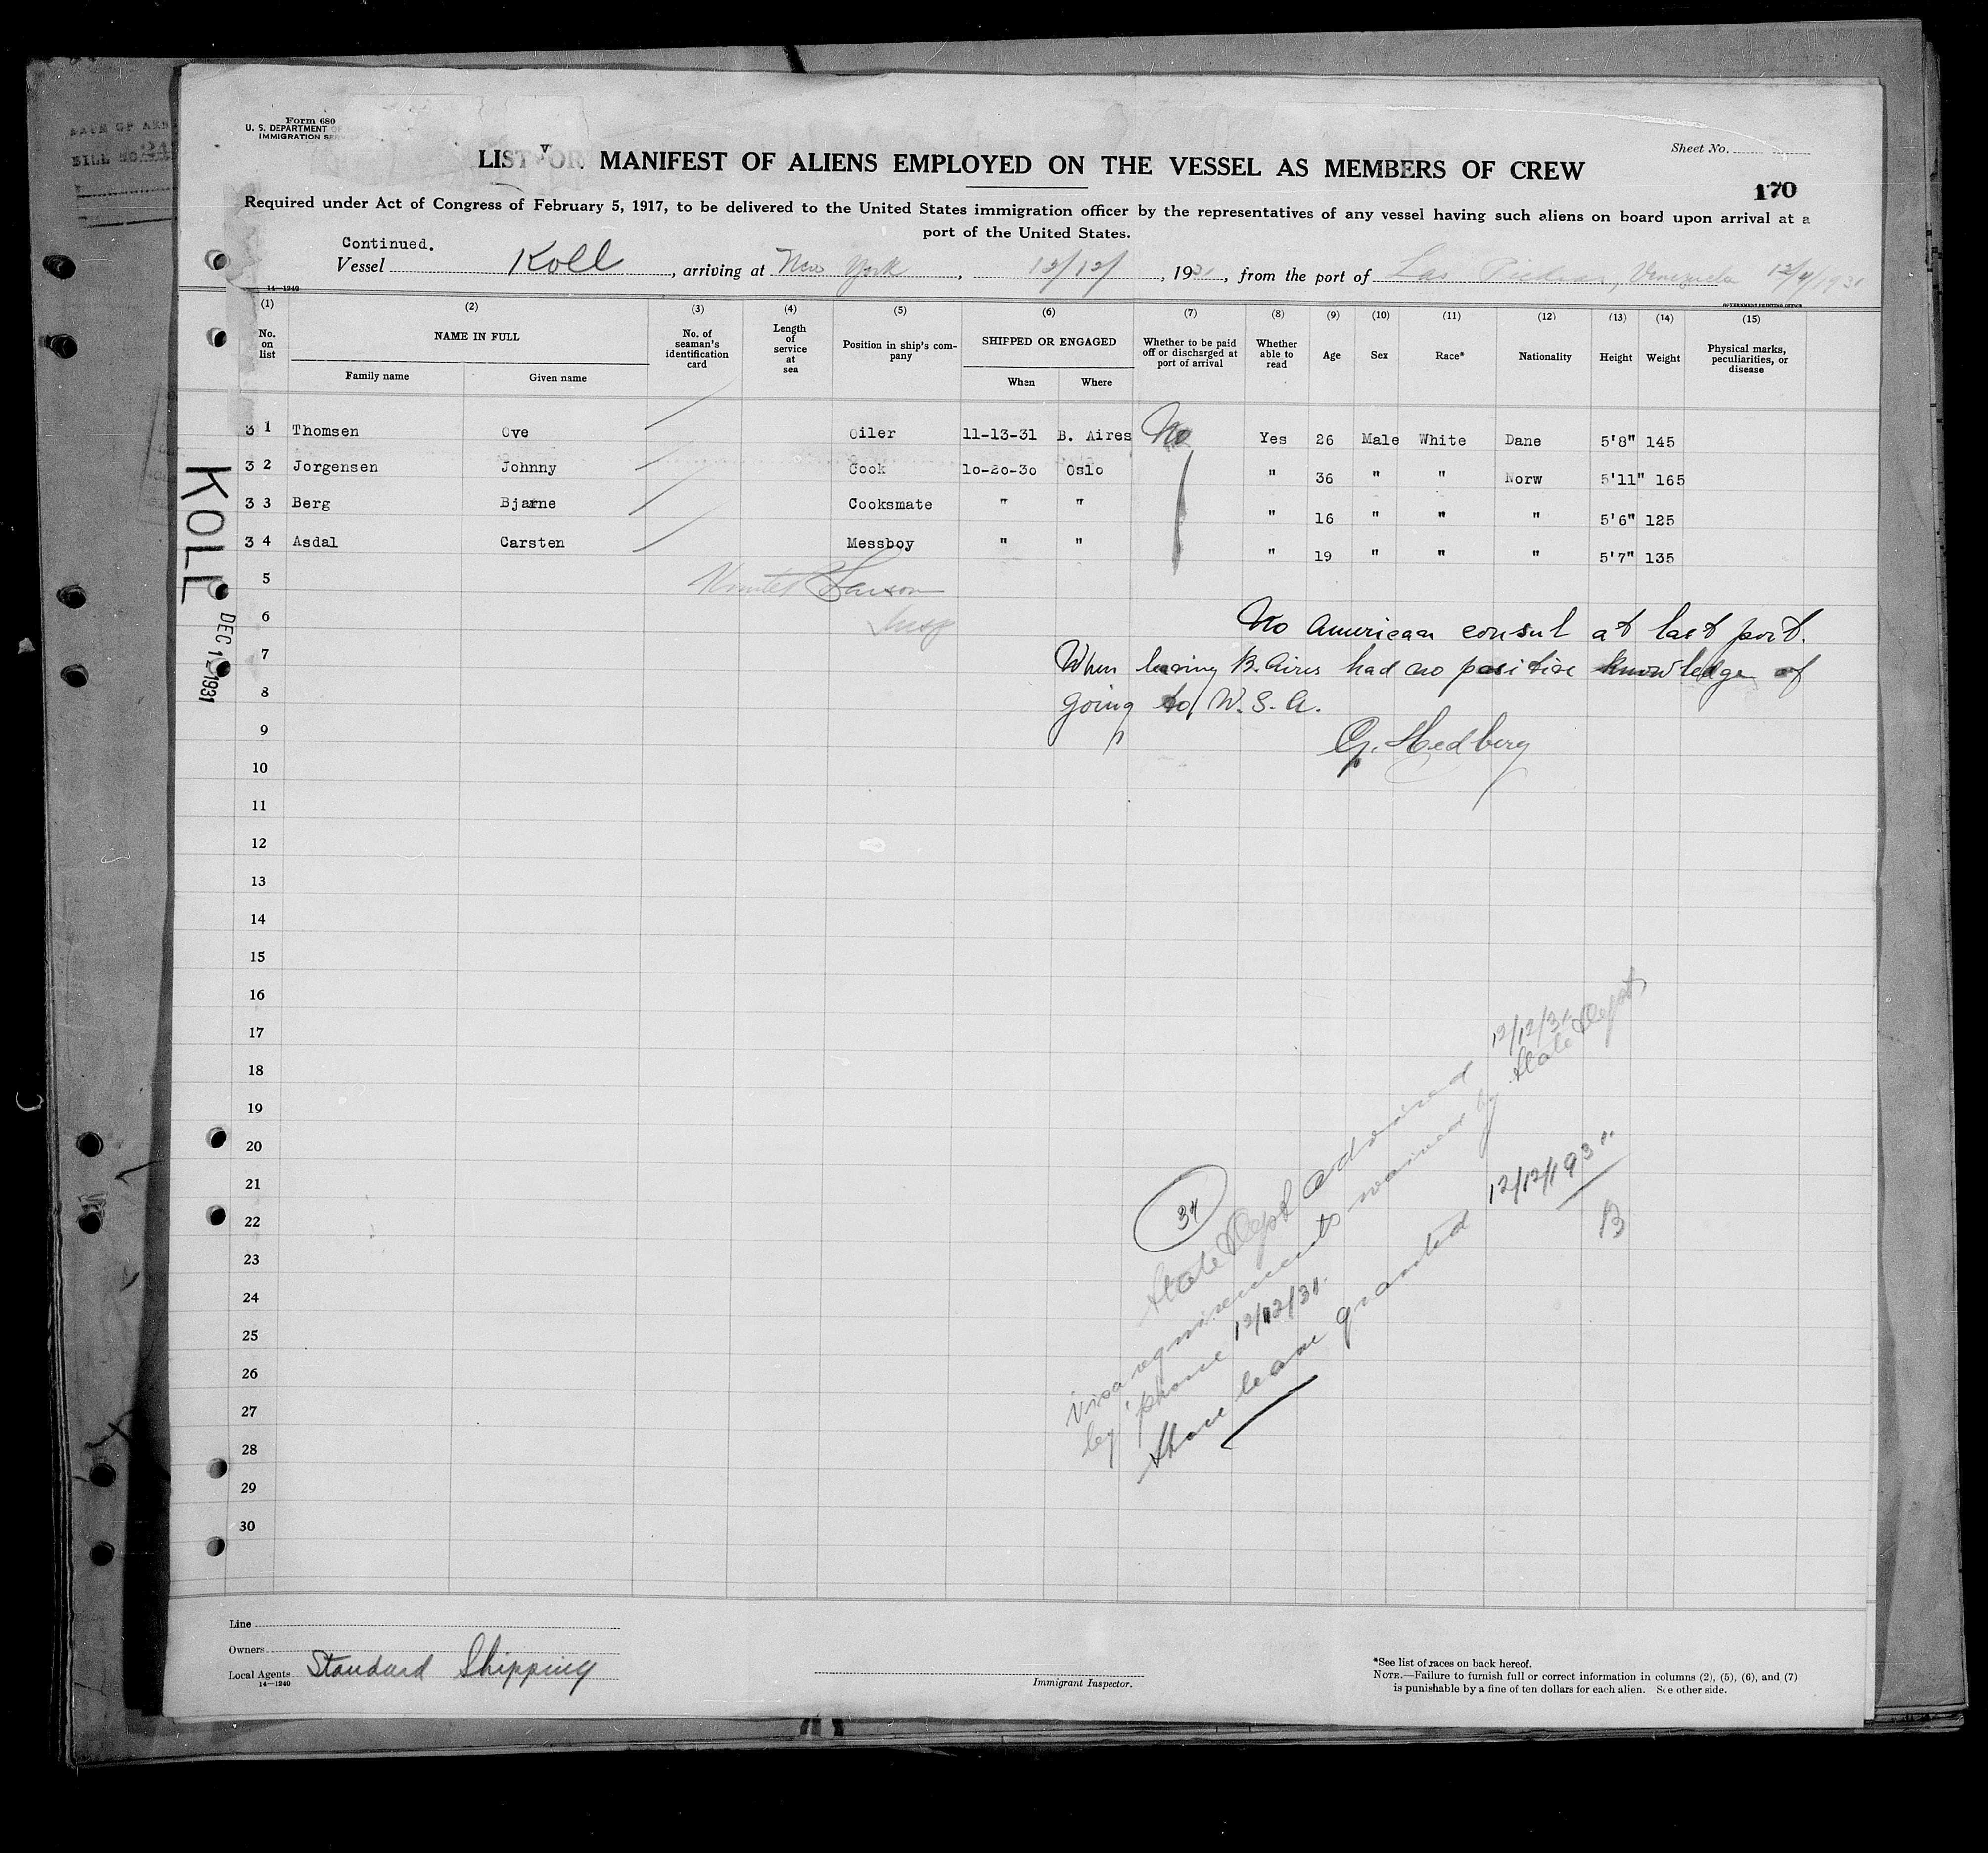 Form 680
U. S. DEPARTMENT OF
IMMIGRATION SERVICE
LIST OR MANIFEST OF ALIENS EMPLOYED ON THE VESSEL AS MEMBERS OF CREW
Sheet No.
170
Required under Act of Congress of February 5, 1917, to be delivered to the United States immigration officer by the representatives of any vessel having such aliens on board upon arrival at a
port of the United States.
Continued.
Vessel Koll, arriving at New York, 12/12/, 1931, from the port of Las Piedras, Venezuela 12/4/1931
14—1240
GOVERNMENT PRINTING OFFICE
(1) (2) (3) (4) (5) (6) (7) (8) (9) (10) (11) (12) (13) (14) (15)
No. on list
NAME IN FULL
Family name Given name
No. of seaman's identification card
Length of service at sea
Position in ship's company
SHIPPED OR ENGAGED
When Where
Whether to be paid off or discharged at port of arrival
Whether able to read
Age Sex Race* Nationality Height Weight
Physical marks, peculiarities, or disease
3 1 Thomsen Ove Oiler 11-13-31 B. Aires No Yes 26 Male White Dane 5'8" 145
3 2 Jorgensen Johnny Cook 10-20-30 Oslo " 36 " " Norw 5'11" 165
3 3 Berg Bjarne Cooksmate " " " 16 " " " 5'6" 125
3 4 Asdal Carsten Messboy " " " 19 " " " 5'7" 135
5
6
7
8
9
10
11
12
13
14
15
16
17
18
19
20
21
22
23
24
25
26
27
28
29
30
KOLL
DEC 12 1931
Larson
Insp
No American consul at last port.
When leaving B. Aires had no positive knowledge of
going to U. S. A.
G. Hedberg
34
State Dept advised 12/12/31
visa requirements waived by State Dept
by 'phone 12/12/31.
Shore leave granted 12/12/1931
B
Line
Owners
Local Agents Standard Shipping
14—1240
Immigrant Inspector.
*See list of races on back hereof.
NOTE.—Failure to furnish full or correct information in columns (2), (5), (6), and (7)
is punishable by a fine of ten dollars for each alien. See other side.
BILL NO.